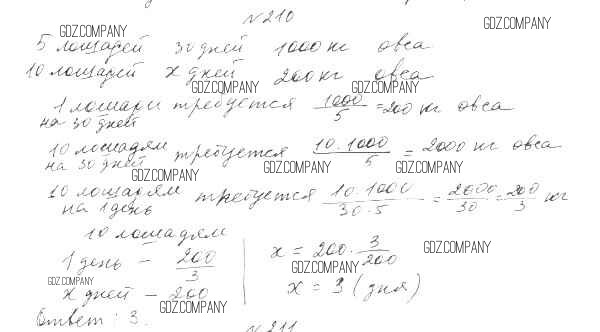 N 210
GDZ.COMPANY GDZ.COMPANY
5 лошадей 30 дней 1000 кг овса
10 лошадей x дней 200 кг овса
GDZ.COMPANY GDZ.COMPANY
1 лошади требуется 1000/5 = 200 кг овса
на 30 дней
10 лошадям требуется 10·1000/5 = 2000 кг овса
на 30 дней
GDZ.COMPANY GDZ.COMPANY GDZ.COMPANY
10 лошадям требуется 10·1000/30·5 = 2000/30 = 200/3 кг
на 1 день
10 лошадям
1 день – 200/3
x = 200 · 3/200
GDZ.COMPANY GDZ.COMPANY GDZ.COMPANY
x дней – 200
x = 3 (дня)
GDZ.COMPANY
Ответ: 3.
N 211